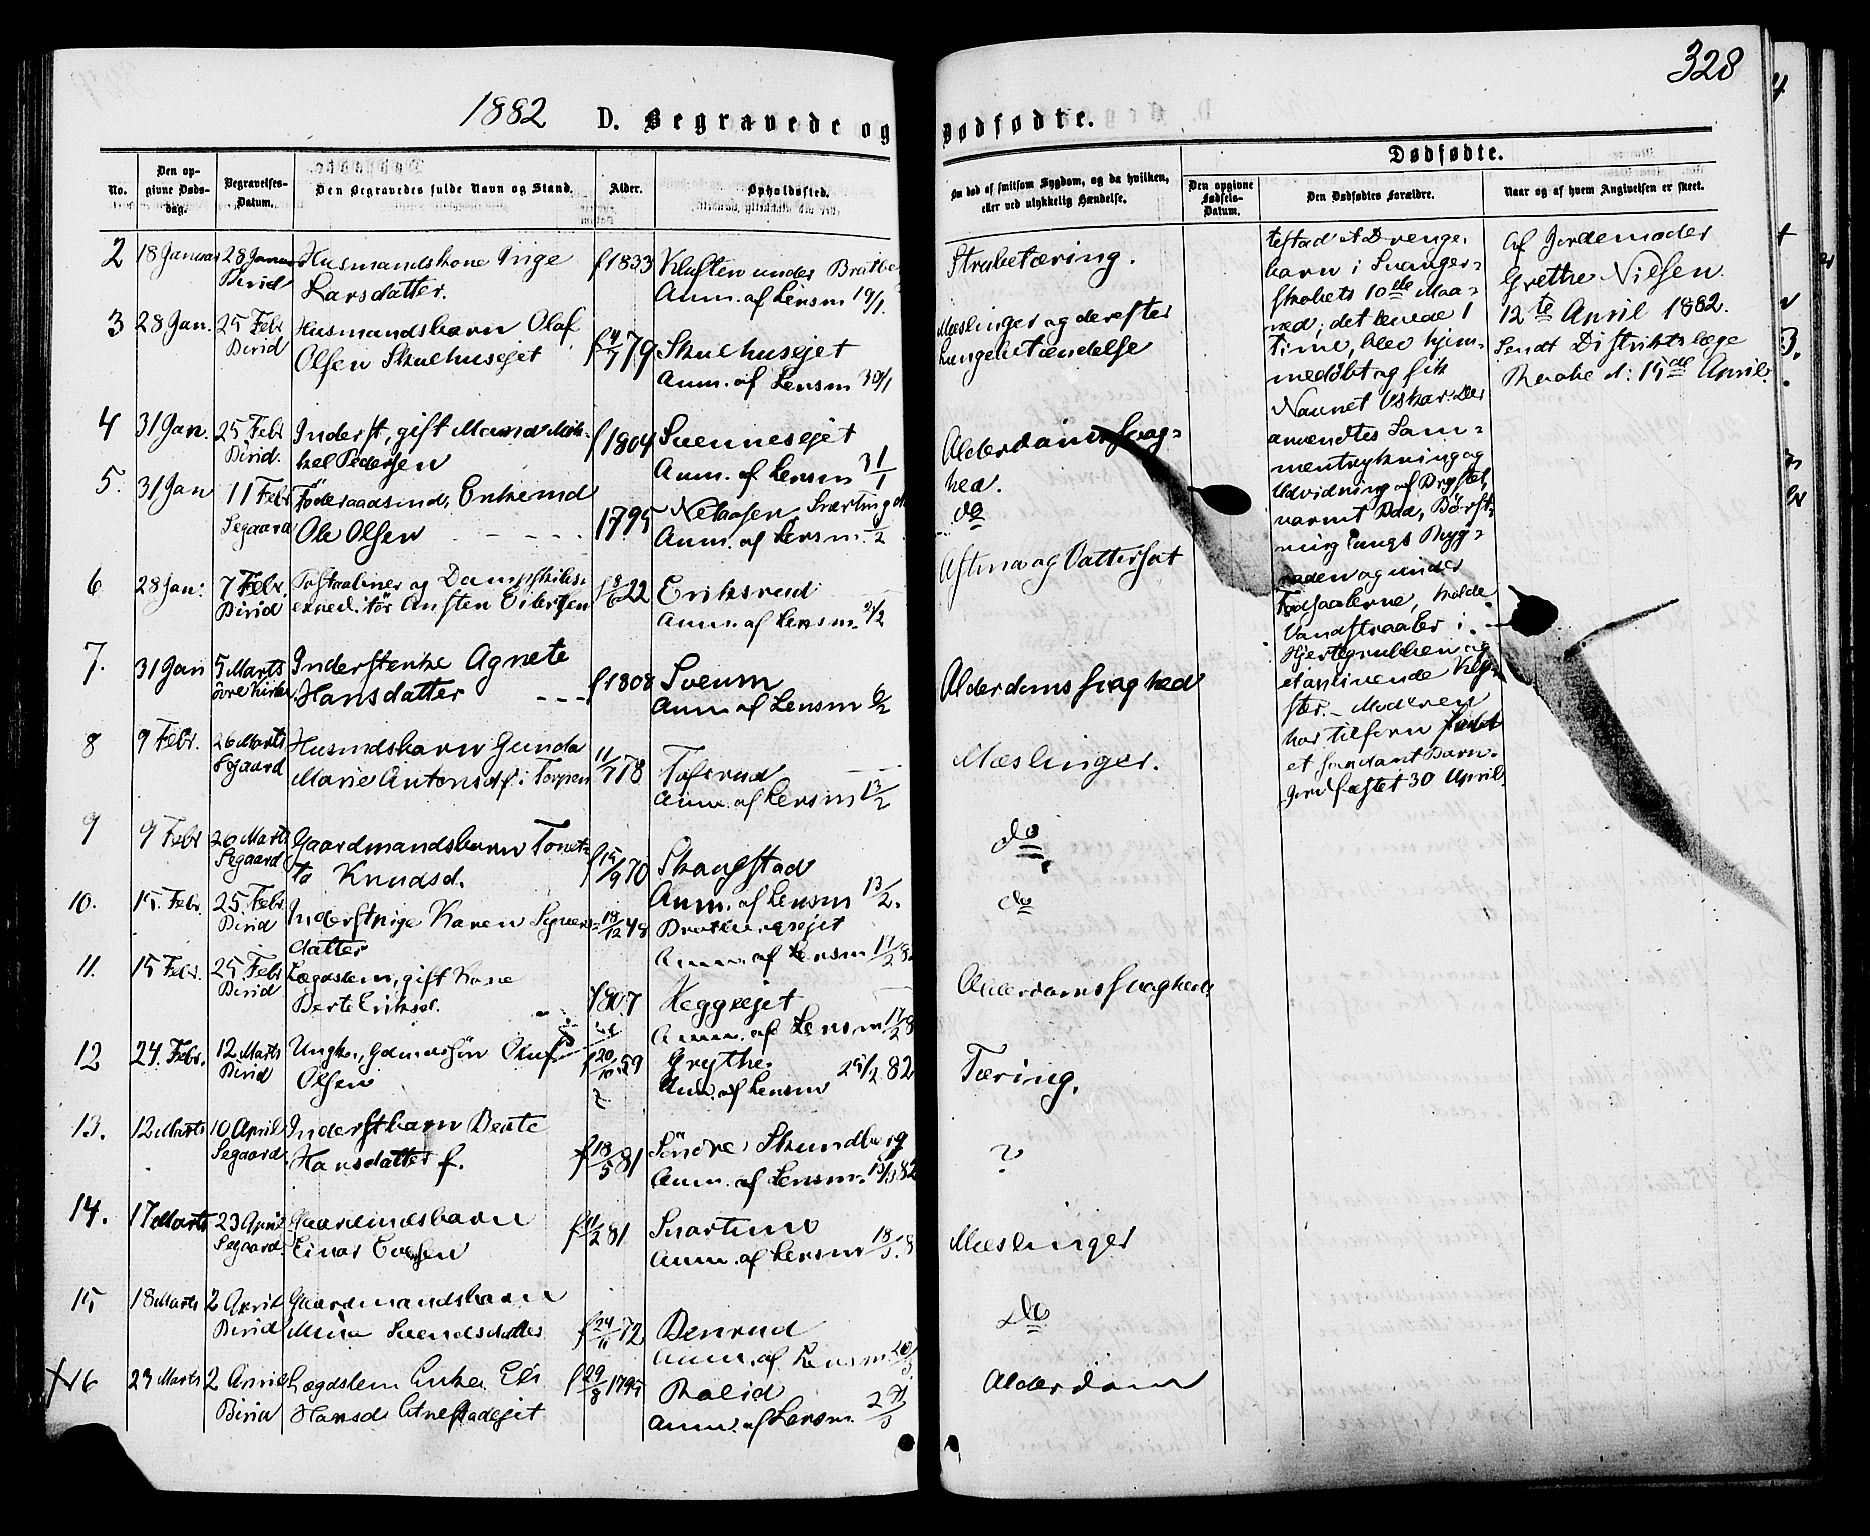 328
1882 D. Begravede og Dødfødte.
No.
Den op-
givne Døds-
dag.
Begravelses-
Datum.
Den Begravedes fulde Navn og Stand.
Alder.
Opholdssted.
Om død af smitsom Sygdom, og da hvilken,
eller ved ulykkelig Hændelse.
Dødfødte.
Den opgivne
Fødsels-
Datum.
Den Dødfødtes Forældre.
Naar og af hvem Angivelsen er skeet.
2 18 Januar 28 Januar Husmandskone Inge f 1833 Kluften under
Birid Larsdatter. Anm. af Lensm 19/1.
Strubetæring.
3 28 Jan. 25 Febr Husmandsbarn Olaf
Birid Olsen Skulhusejet f 4/7 79 Skulhusejet
Anm. af Lensm 30/1
Mæslinger og derefter
Lungebetændelse
4 31 Jan. 25 Febr Inderst, gift Mand Mik- f 1804 Svennesejet
Birid. kel Pedersen Anm. af Lensm 31/1
Alderdomssvag-
hed.
5. 31 Jan 11 Febr Föderaadsmd, Enkemd
Segaard Ole Olsen 1795
Anm. af Lensm. /2
do
6 28 Jan: 7 Febr. og Dampskibs-
Birid expeditör Austen Eilertsen f 8/6 22 Eriksrud
Anm. af Lensm. 2/2
Astma og Vattersot
7. 31 Jan 5 Marts Inderstenke Agnete
övre Kirke Hansdatter f 1808 Sveum
Anm. af Lensm 6/2
Alderdomssvaghed
8 9 Febr. 26 Marts Husmdsbarn Gunda
Segaard Marie Antonsdt. i Torpen 11/7 78 Tofsrud
Anm. af Lensm 13/2
Mæslinger.
9 9 Febr 26 Marts Gaardmandsbarn Tonet-
Segaard ta Knudsd. f 15/9 70 Skaugstad
Anm. af Lensm 13/2.
do
10. 15. Febr. 25. Febr Inderstpige Karen Sigvers-
Birid datter 18/12 48
Anm. af Lensm 17/2 82
do
11. 15 Febr. 25 Febr Lægdslem, gift Kone
Birid Berte Eriksd. 1807 Heggsejet
Anm. af Lensm 17/2 8
Alderdomssvaghed
12 24. Febr. 12 Marts Ungk., Gdmdssön Oluf
Birid Olsen f 20/10 59 Grythe.
Anm. af Lensm 25/2 82
Tæring.
13. 12 Marts 10 April Inderstbarn Beate
Segaard. Hansdatter f. f 18/5 81 Söndre Skundberg
Anm. af Lensm. 13/3 82
?
14. 17 Marts 23 April Gaardmdsbarn f 11/2 81 Svartuno
Segaard. Einar Evensen Anm. af Lensm 18/3. 8
Mæslinger
15 18 Marts 2 April Gaardmandsbarn
Birid Mina Svendsdatter f 24/11 72 Benrud
Anm. af Lensm 20/3
do
16 23 Marts 2 April Lægdslem Enke Eli f 29/8 1795
Birid Hansd. Anm. af Lensm. 2 /3
Alderdom
et Drenge-
barn i Svanger-
skabets 10de Maa-
ned; det levede 1
Time, blev hjem-
medöbt og fik
Navnet Oskar. Der
anvendtes Sam-
mentrykning og
Udvidning af Brystet,
varmt Bad, Börst-
ning langs Ryg-
raden og under
Fodsaalerne, kolde
Vandstraaler i
Hjertegruben og
et oplivende Kly-
stær. - Moderen
har tilforn födt
et Barn.
Jordfæstet 30 April.
Af Jordemoder
Grethe Nilsen
12te April 1882.
Sendt Distriktslæge
d: 15de April.